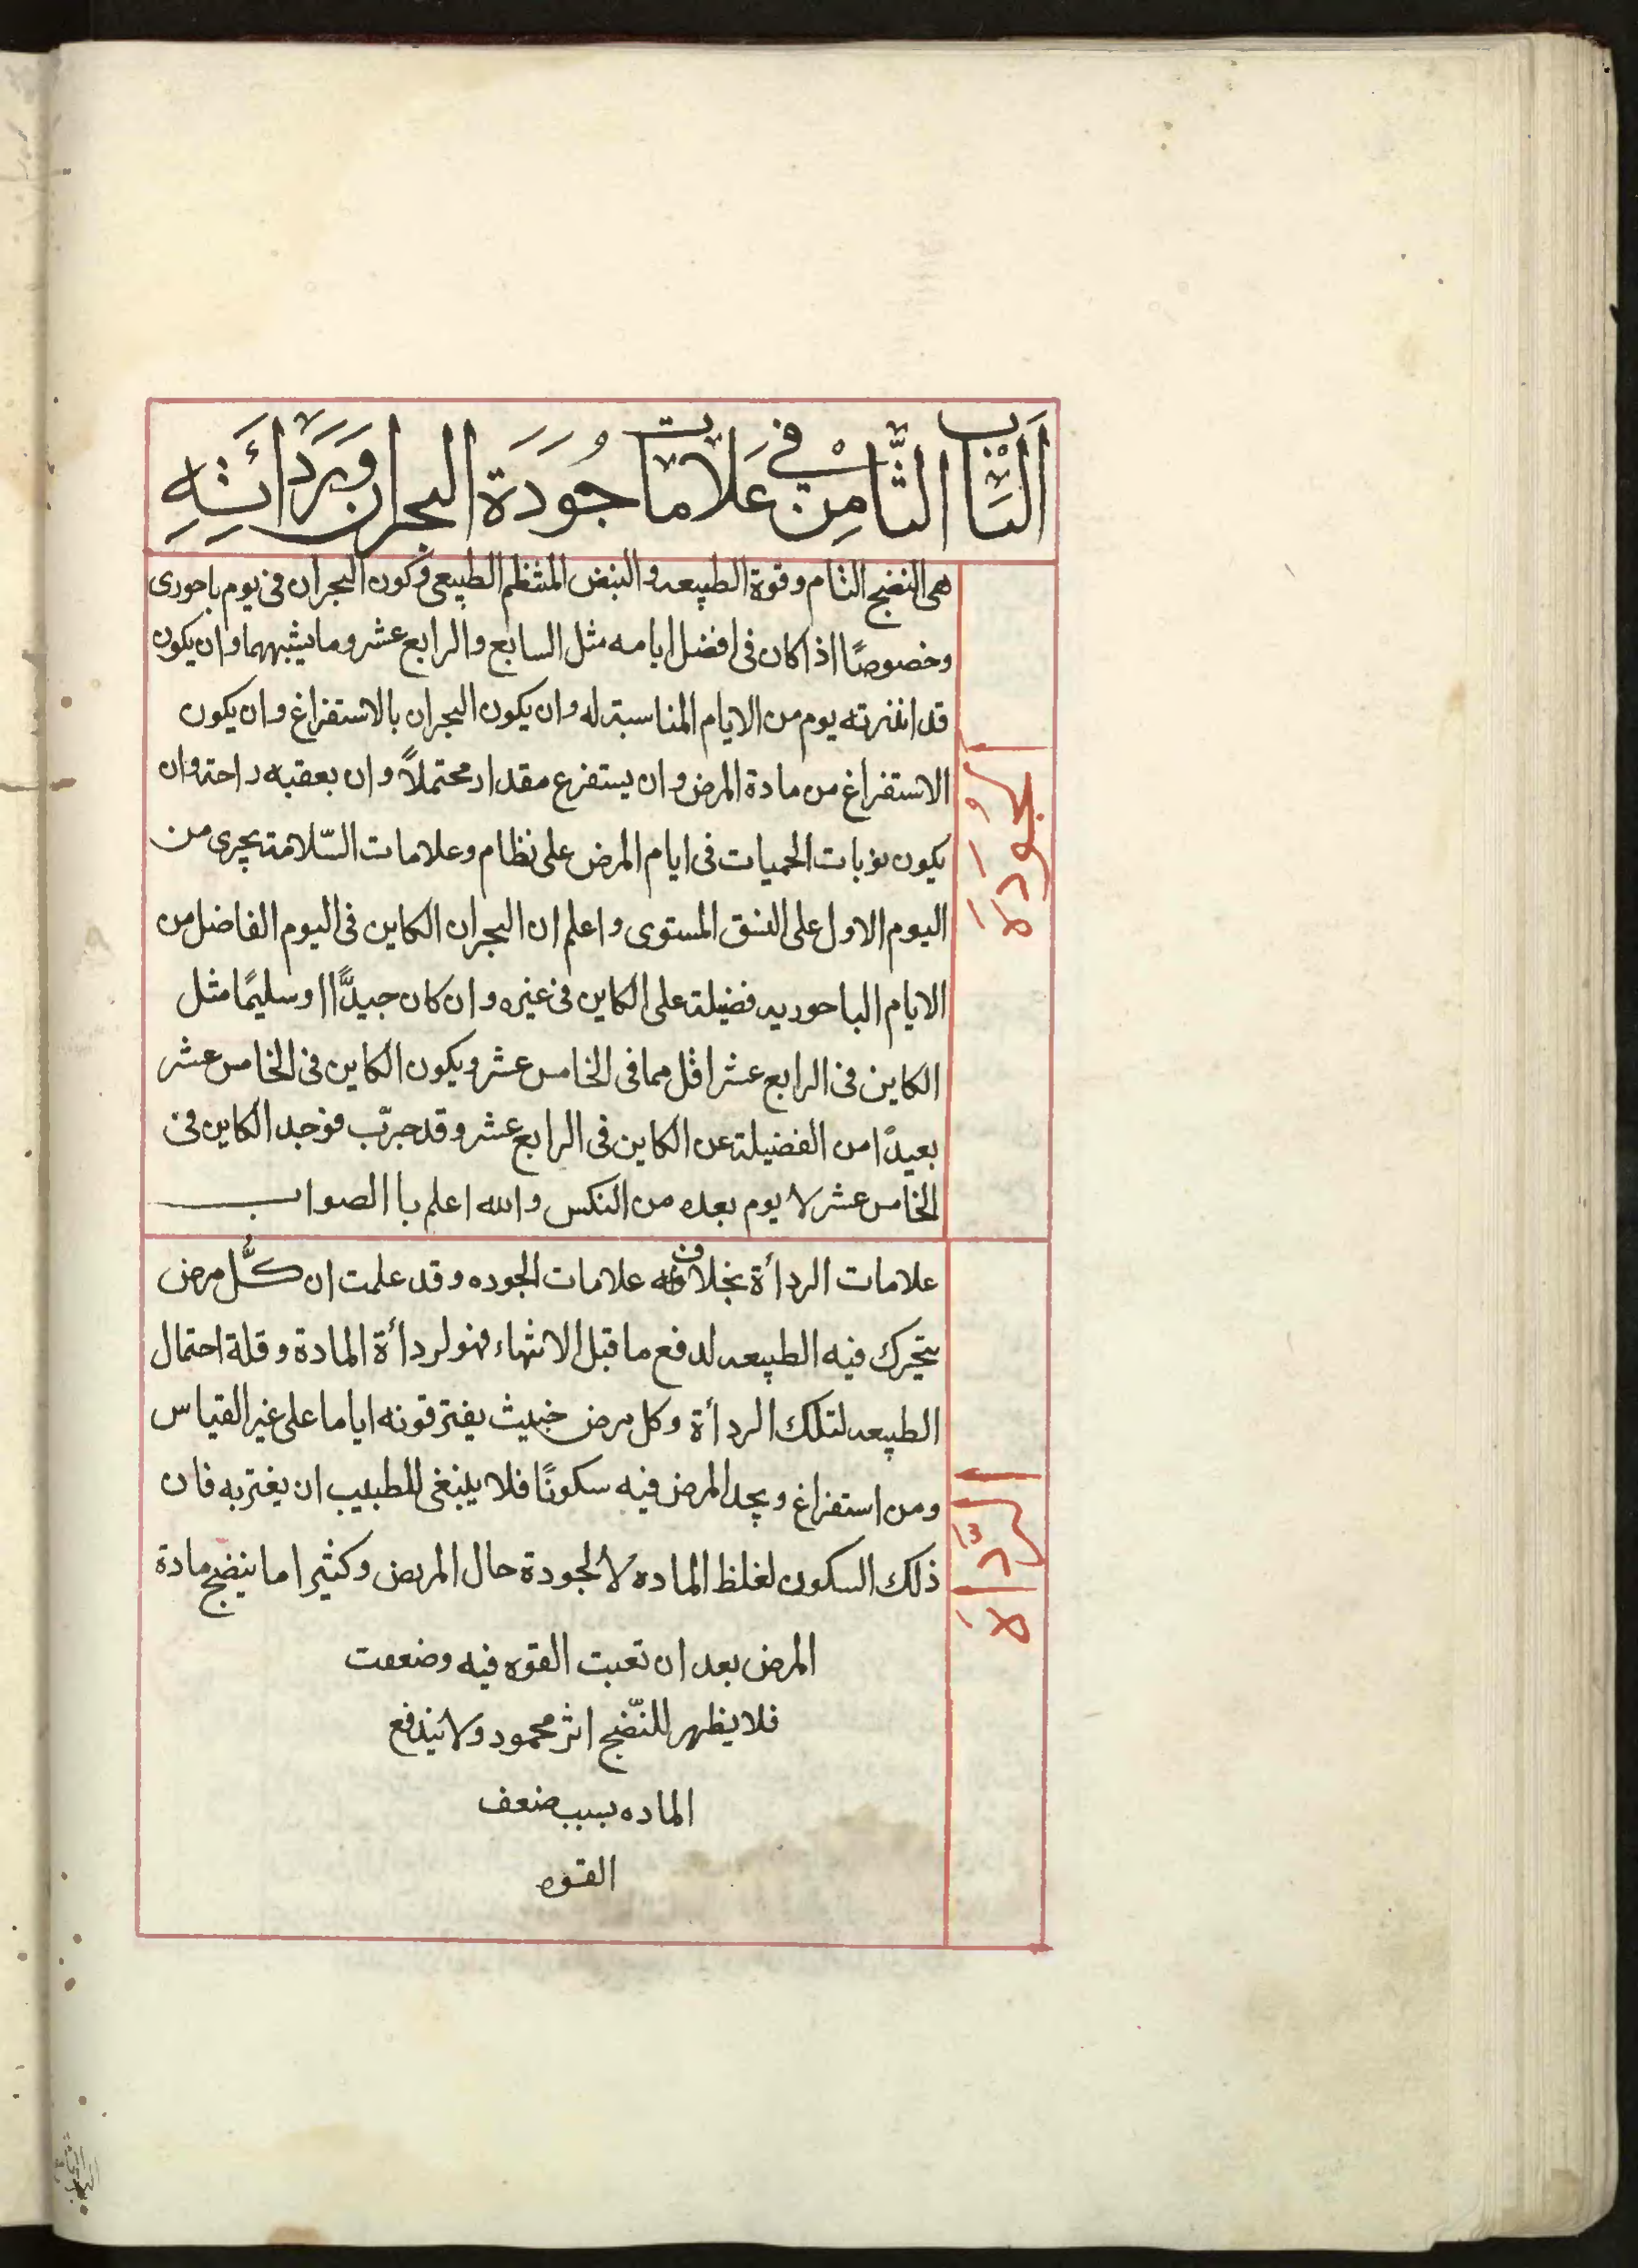 اَلبَابُ الثَّامِنْ في عَلَامَات جُودَة البحران وَرَدَائَتِهِ
الجُودَة
هى النضج التام وقوة الطبيعه والنبض المنتظم الطبيعى وكون البحران فى يوم باحورى
وخصوصًا اذا كان فى افضل ايامه مثل السابع والرابع عشر وما يشبههما وان يكون
قد انذرته يوم من الايام المناسبة له وان يكون البحران بالاستفراغ وان يكون
الاستفراغ من مادة المرض وان يستفرع مقدار محتملاً وان يعقبه راحة وان
يكون نوبات الحميات فى ايام المرض على نظام وعلامات السّلامة يجرى من
اليوم الاول على النسق المستوى واعلم ان البحران الكاين فى اليوم الفاضل من
الايام الباحوريه فضيلة على الكاين فى غيره وان كان جيدًّا او سليمًا مثل
الكاين فى الرابع عشر اقل مما فى الخامس عشر ويكون الكاين فى الخامس عشر
بعيدًا من الفضيلة عن الكاين فى الرابع عشر وقد جرّب فوجد الكاين فى
الخامس عشر لا يوم بعده من النكس والله اعلم باالصواب
الرّداأة
علامات الردأة بخلاف علامات الجوده وقد علمت ان كُّل مرض
يتحرك فيه الطبيعه لدفع ما قبل الانتهاء فهو لردأة المادة وقلة احتمال
الطبيعه لتلك الردأة وكل مرض خبيث يفتر قوته اياما على غير القياس
ومن استفراغ ويجد المرض فيه سكونًا فلا يلبنغى للطبيب ان يغتر به فان
ذلك السكون لغلظ الماده لا لجودة حال المريض وكثيرا ما ينضج مادة
المرض بعد ان تعبت القوه فيه وضعفت
فلا يظهر للنّضج اثر محمود ولا يندفع
الماده بسبب ضعف
القوه